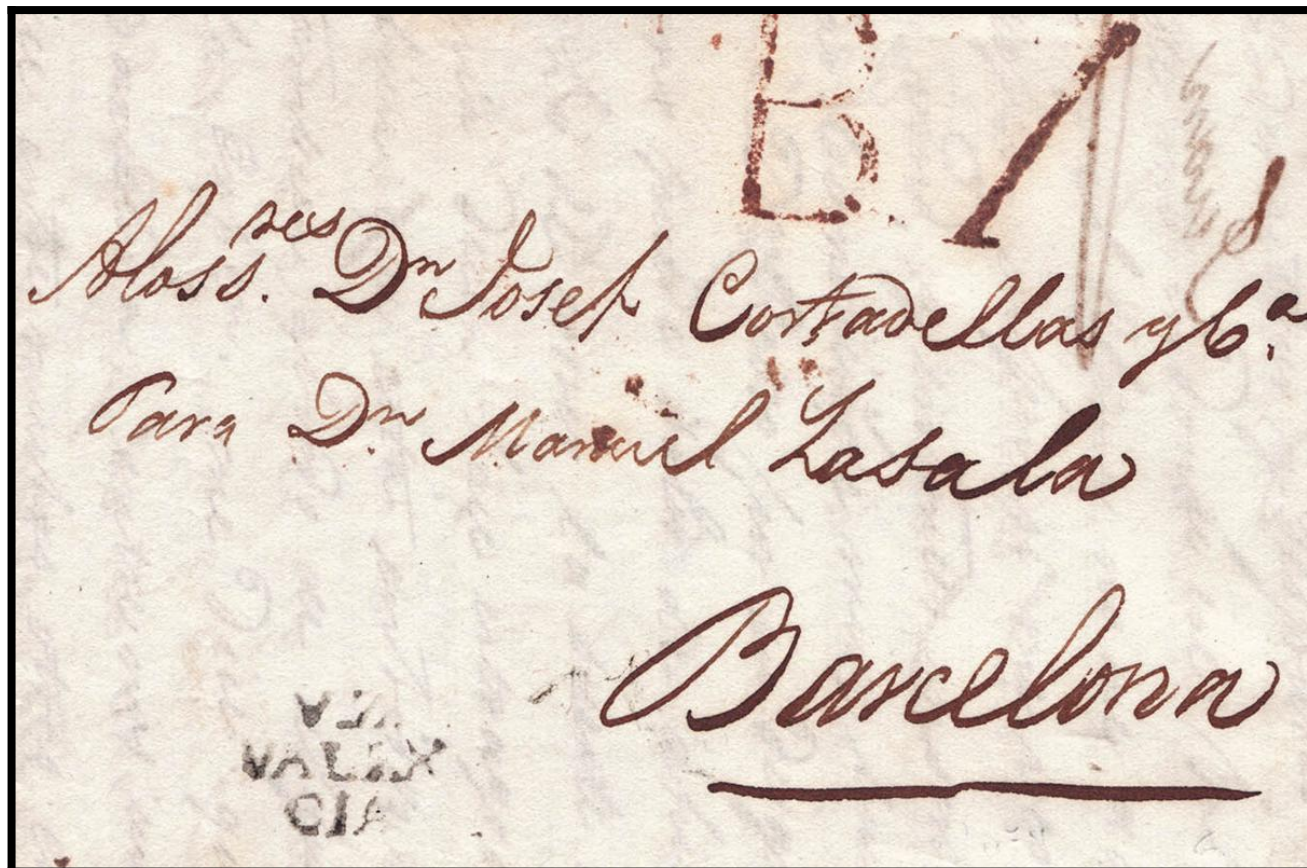 B
A los S.res Dn Josef Cortadellas y Ca.
Para Dn Manuel Lasala
Barcelona
VALEN
CIA